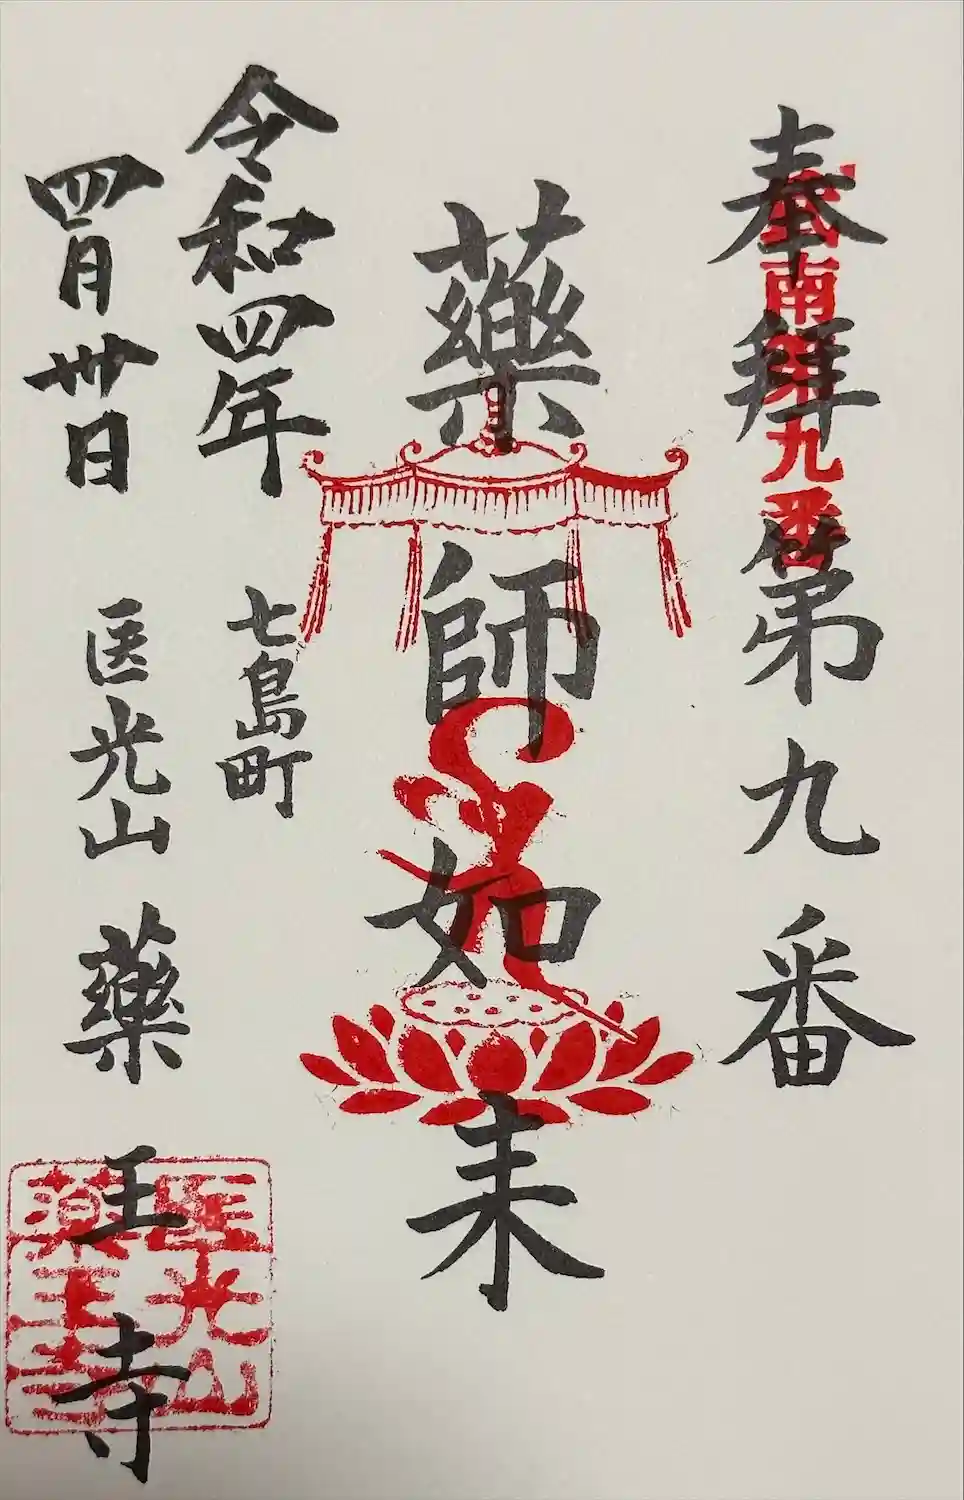 奉拜 第九番
武南第九番
藥師如来
令和四年
四月卅日
七島町
医光山 藥王寺
医光山
藥王寺